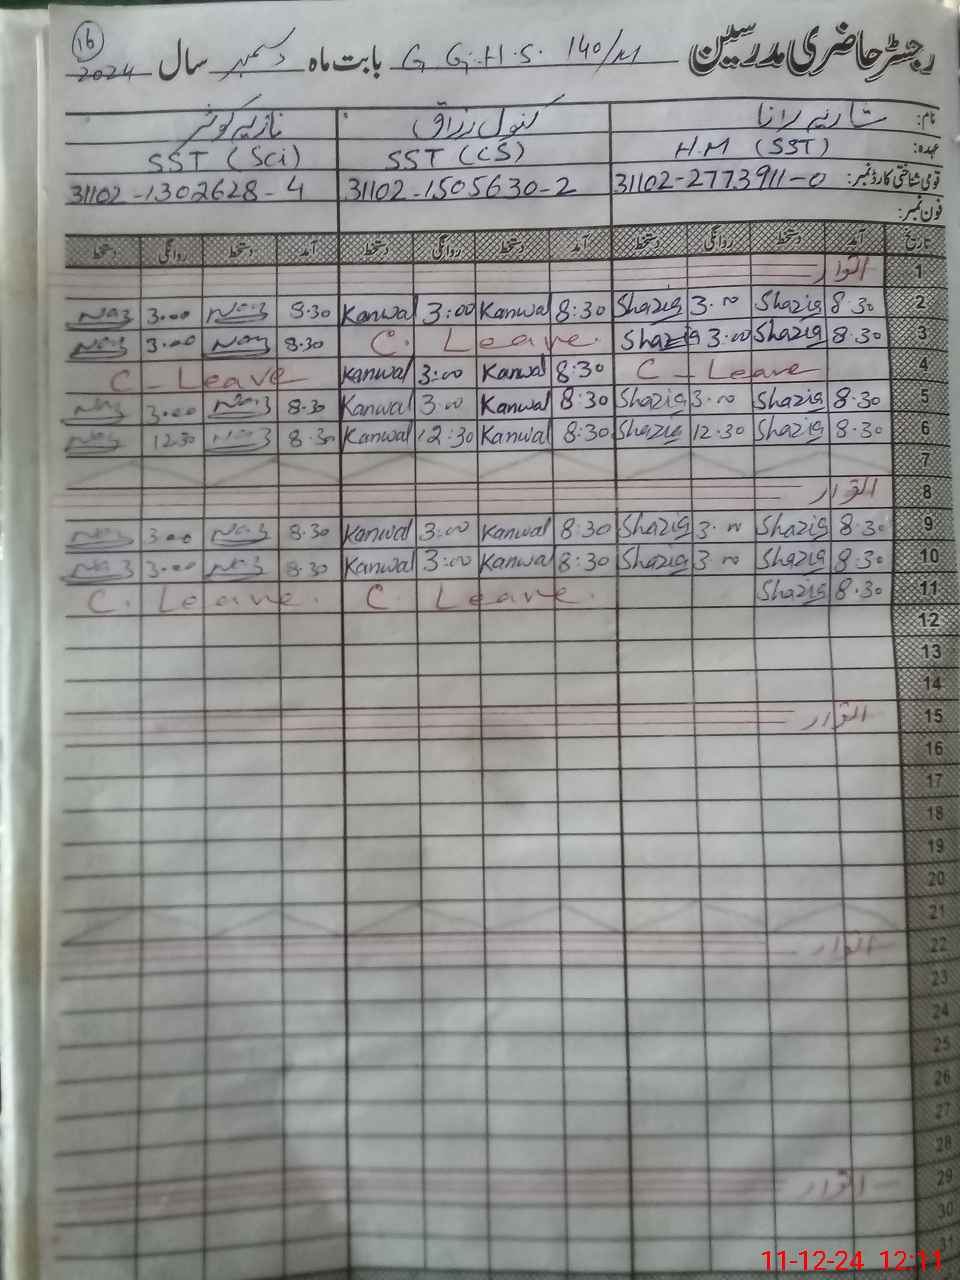 16
رجسٹر حاضری مدرسین G.G.H.S. 140/M بابت ماہ دسمبر سال 2024
نام: شازیہ رانا کنول رزاق نازیہ کوثر
عہدہ: H.M (SST) SST (CS) SST (Sci)
قومی شناختی کارڈ نمبر: 31102-2773911-0 31102-1505630-2 31102-1302628-4
فون نمبر:
تاریخ آمد دستخط روانگی دستخط آمد دستخط روانگی دستخط آمد دستخط روانگی دستخط
1 اتوار
2 8.30 Shazia 3.00 Shazia 8:30 Kanwal 3:00 Kanwal 8.30 Naz 3.00 Naz
3 8.30 Shazia 3.00 Shazia C. Leave. 8.30 Naz 3.00 Naz
4 C - Leave 8:30 Kanwal 3:00 Kanwal C - Leave
5 8.30 Shazia 3.00 Shazia 8:30 Kanwal 3:00 Kanwal 8.30 Naz 3.00 Naz
6 8.30 Shazia 12.30 Shazia 8:30 Kanwal 12:30 Kanwal 8.30 Naz 12.30 Naz
7
8 اتوار
9 8.30 Shazia 3.00 Shazia 8:30 Kanwal 3:00 Kanwal 8.30 Naz 3.00 Naz
10 8.30 Shazia 3.00 Shazia 8:30 Kanwal 3:00 Kanwal 8.30 Naz 3.00 Naz
11 8.30 Shazia C. Leave. C. Leave.
12
13
14
15 اتوار
16
17
18
19
20
21
22 اتوار
23
24
25
26
27
28
29 اتوار
30
31
11-12-24 12:11